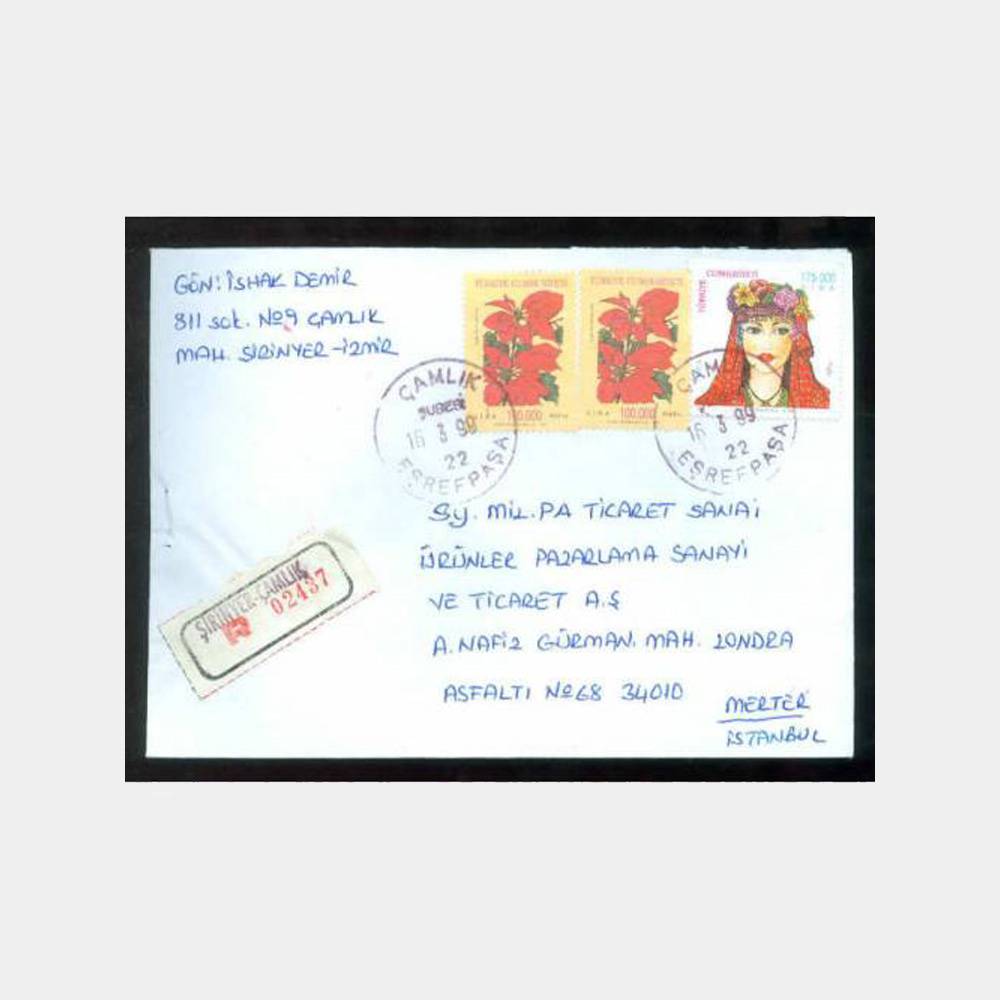 GÖN: İSHAK DEMİR
811 sok. No 9 ÇAMLIK
MAH. ŞİRİNYER-İZMİR
TÜRKİYE CUMHURİYETİ
LİRA 100.000
TÜRKİYE CUMHURİYETİ
LİRA 100.000
TÜRKİYE CUMHURİYETİ
175.000
LİRA
ÇAMLIK
ŞUBESİ
16 3 99
22
EŞREFPAŞA
ÇAM
16 3 99
22
EŞREFPAŞA
Sy. MİL.PA TİCARET SANAİ
ÜRÜNLER PAZARLAMA SANAYİ
VE TİCARET A.Ş
A. NAFİZ GÜRMAN. MAH. LONDRA
ASFALTI No 68 34010
MERTER
İSTANBUL
ŞİRİNYER-ÇAMLIK
R 02437